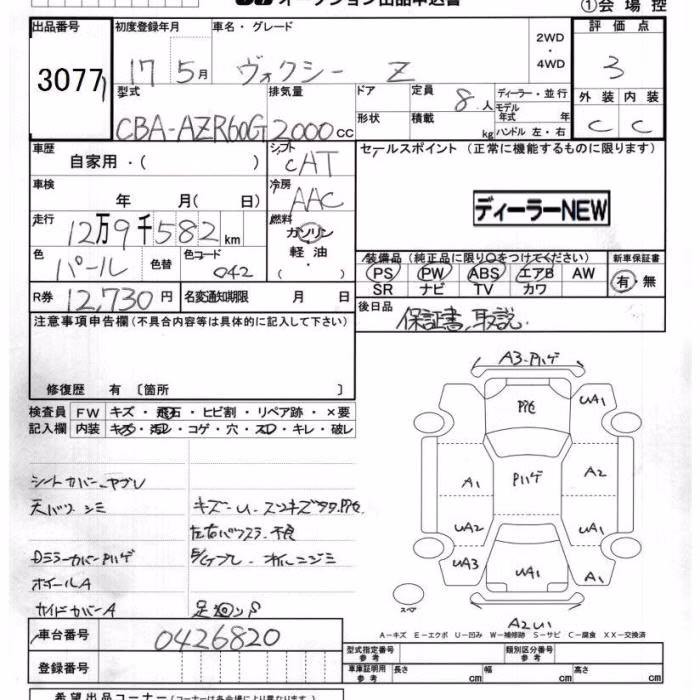 オークション出品申込書
①会場控
出品番号 初度登録年月 車名・グレード 評価点
3077 17 5月 ヴォクシー Z 2WD・4WD 3
型式 排気量 ドア 定員 8人 ディーラー・並行 外装 内装
CBA-AZR60G 2000cc 形状 積載 kg モデル年式 年 ハンドル 左・右 C C
車歴 シフト セールスポイント (正常に機能するものに限ります)
自家用・( ) CAT
車検 冷房
年 月( 日) AAC ディーラーNEW
走行 燃料
12万9千582km ガソリン
軽油
・( )
色 色替 色コード 装備品 (純正品に限り○をつけてください) 新車保証書
パール 042 PS PW ABS エアB AW 有・無
SR ナビ TV カワ
R券 12,730円 名変通知期限 月 日 後日品
保証書、取説
注意事項申告欄(不具合内容等は具体的に記入して下さい)
修復歴 有 〔箇所 〕
検査員 FW キズ・飛石・ヒビ割・リペア跡・×要
記入欄 内装 キズ・汚レ・コゲ・穴・スレ・キレ・破レ
シートカバー、ヤブレ
天バリシミ
左右パワスラ不良
オイルニジミ
DミラーカバーPハゲ
ホイールA
サイドカバーA
A3・Pハゲ
UA1
A1 Pハゲ A2
UA2 UA1
UA3 UA1 A1
スペア
A2U1
A-キズ E-エクボ U-凹み W-補修跡 S-サビ C-腐食 XX-交換済
車台番号 0426820
型式指定番号 参考 類別区分番号 参考
登録番号
車庫証明用 参考 長さ cm 幅 cm 高さ cm
希望出品コーナー